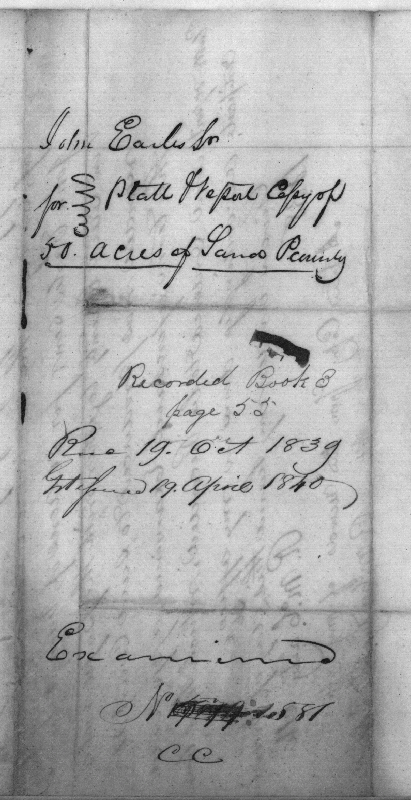 John Earles Sr
for Platt & Report Copy of
50. acres of Land P County
Recorded Book 3
page 55
Rec 19. Oct 1839
Issued 19. April 1840
Examined
No 1881
CC